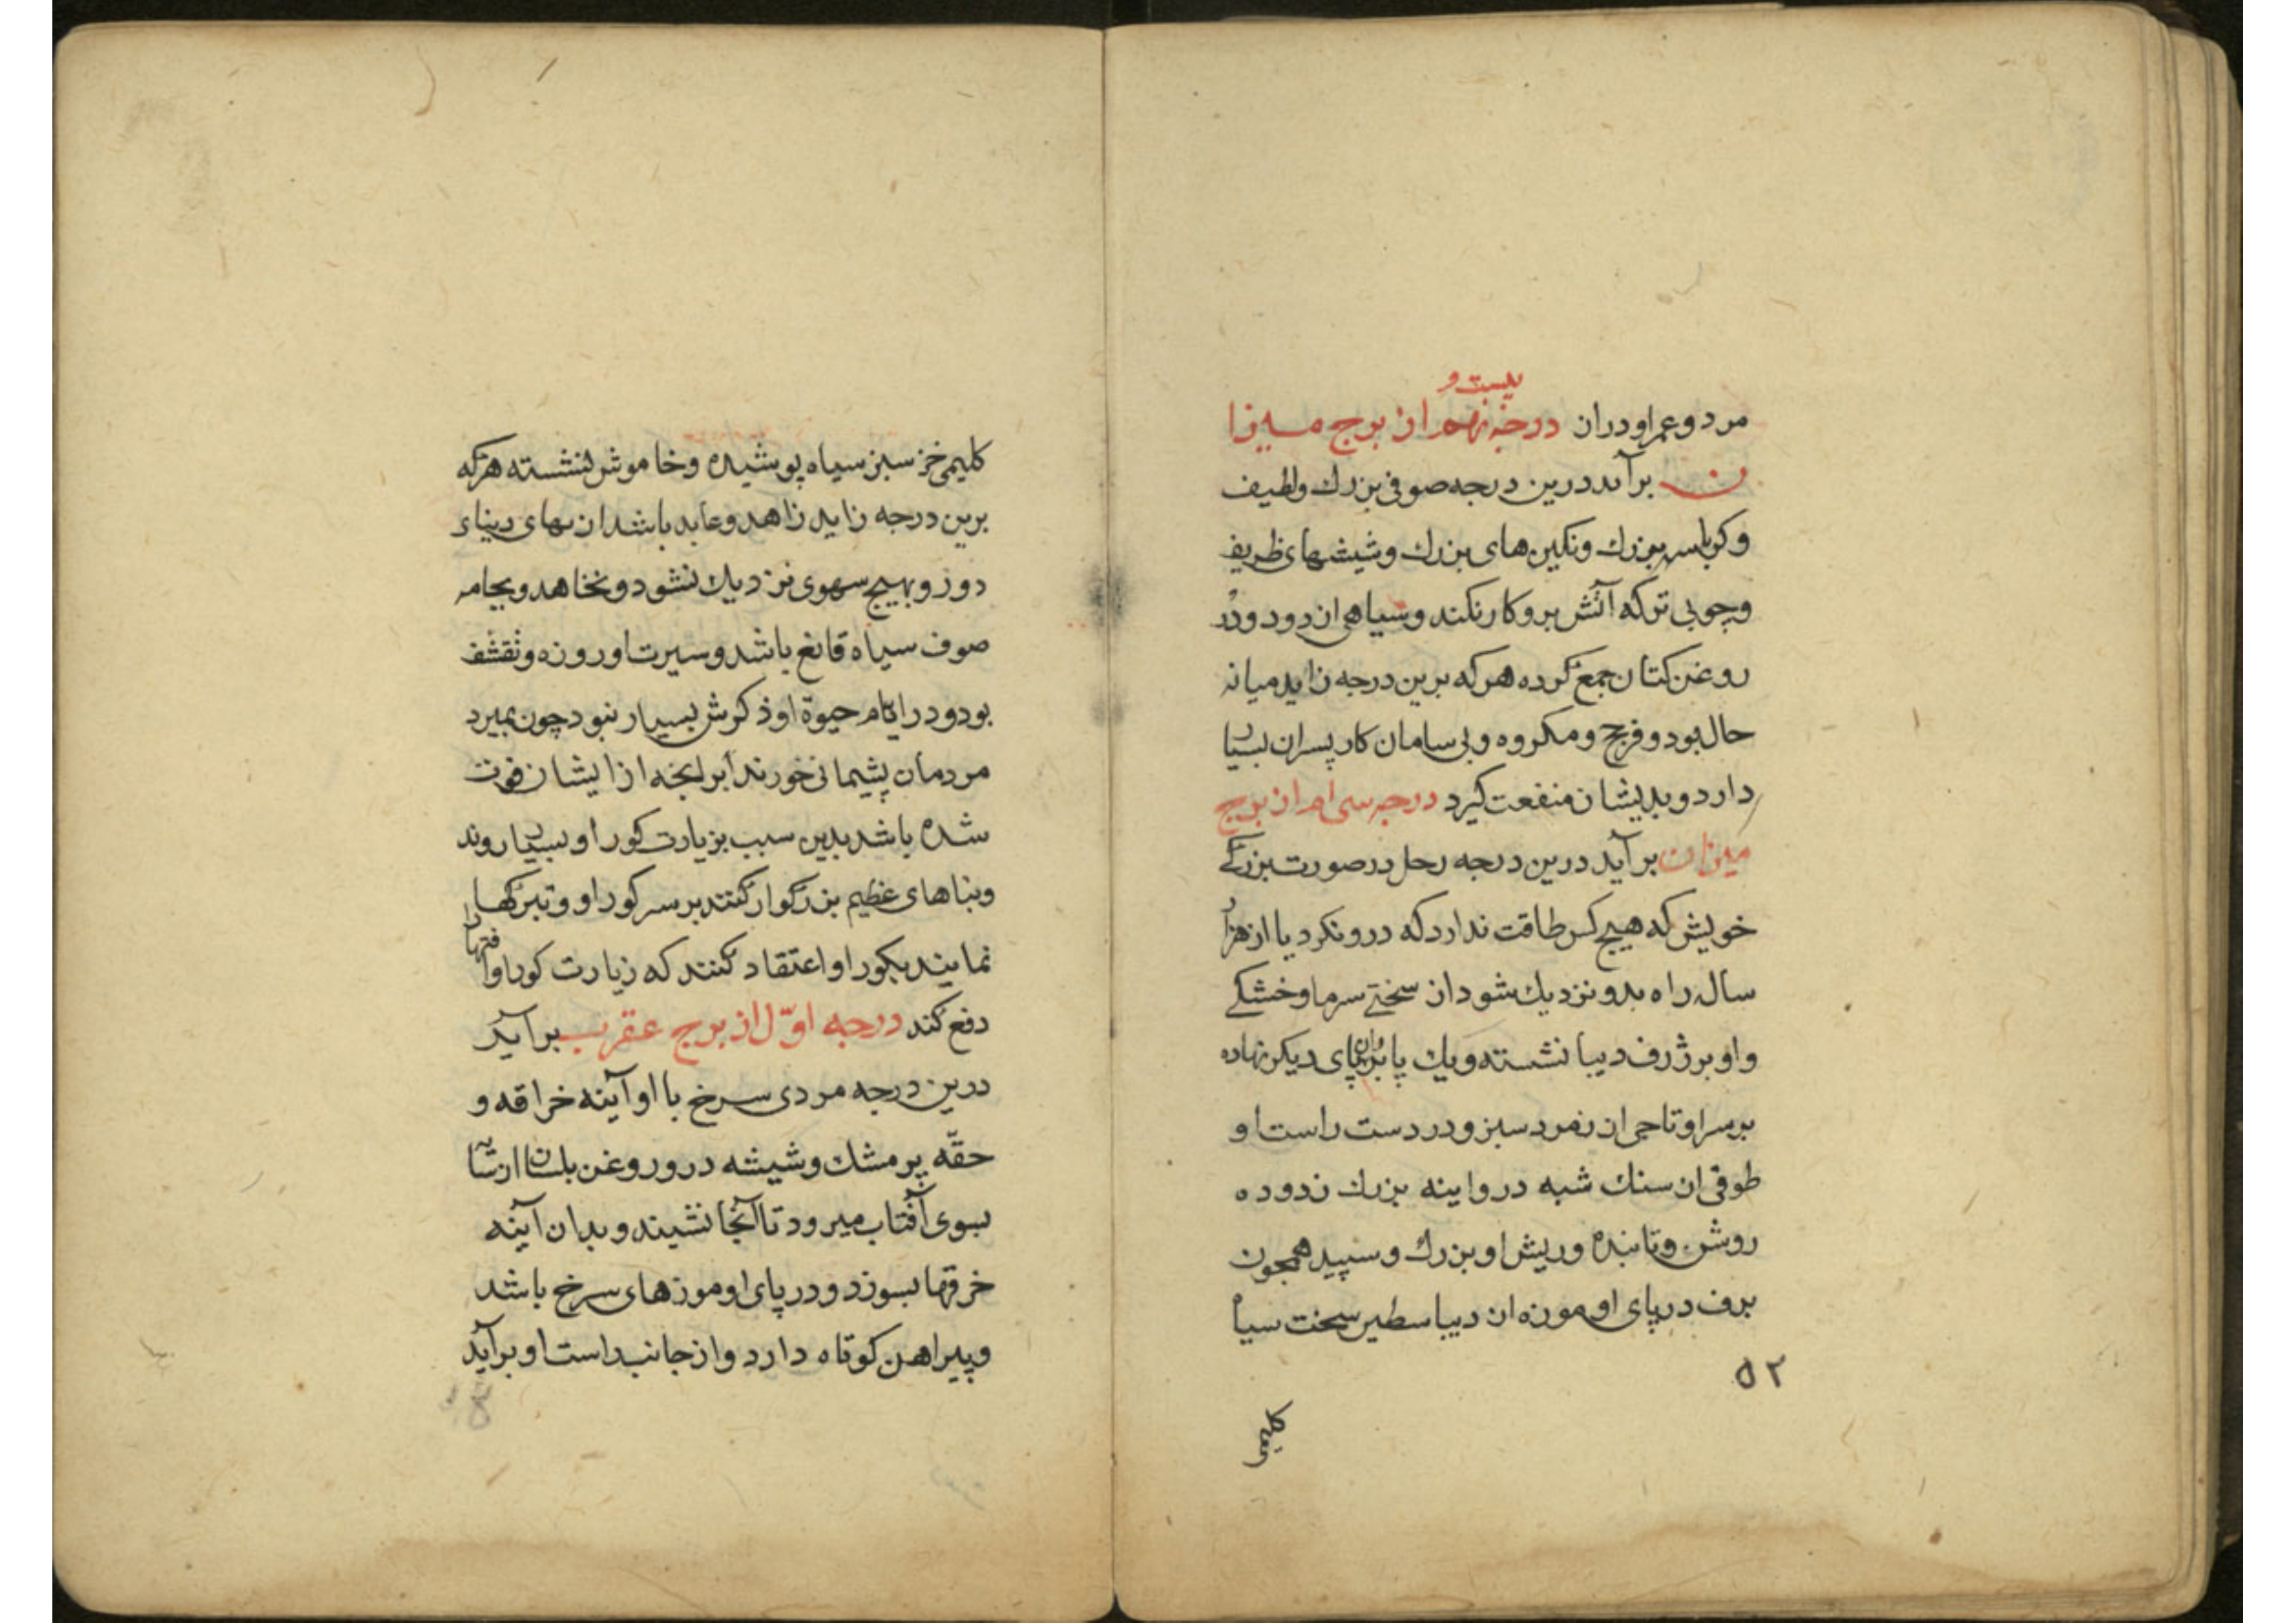 بیست و
مرد و عمر او دران درجه نهم از برج میزا
ن برآید درین درجه صوفی بزرك ولطیف
و کرباسه بزرك ونکین های بزرك وشیشهای ظریف
وچوبی تر که آتش بروکار نکند وسیاهی از دود ودر
روغن کتان جمع کرده هرکه برین درجه زاید میانه
حال بود و فربح ومکروه وبی سامان کار پسران بسیار
دارد و بدیشان منفعت کیرد درجه سی ام از برج
میزان برآید درین درجه زحل در صورت بزرکی
خویش که هیچ کس طاقت ندارد که درو نکرد یا از هزار
سال راه بدو نزدیك شود از سختی سرما وخشکی
واو برژرف دیبا نشسته ویك پا بران پای دیکر نهاده
برسر او تاجی از زمرد سبز و در دست راست او
طوقی از سنك شبه در و اینه بزرك زدوده
روشن وتابنده وریش او بزرك وسپید همچون
برف در پای او موزه از دیبا سطبر سخت سیاه
۵۲
کلیمی خز سبز سیاه پوشیده وخاموش نشسته هرکه
برین درجه زاید زاهد وعابد باشد از بهای دنیاء
دور و بهیج سهوی نزدیك نشود ونخاهد وبجامه
صوف سیاه قانع باشد وسیرت او روزه وتقشف
بود و در ایام حیوة او ذکرش بسیار نبود چون بمیرد
مردمان پشیمانی خورند ابر انجه از ایشان فوت
شده باشد بدین سبب بزیارت کور او بسیار روند
وبناهای عظیم بزرکوار کنند بر سر کور او وتبرکها
نمایند بکور او واعتقاد کنند که زیارت کور او آفتها را
دفع کند درجه اوّل از برج عقرب برآید
درین درجه مردی سرخ با او آینه خراقه و
حقّه پر مشك وشیشه درو روغن بلسان از شتاب
بسوی آفتاب میرود تا آنجا نشیند و بدان آینه
خرقها بسوزد و در پای او موزهای سرخ باشد
وپیراهن کوتاه دارد واز جانب راست او برآید